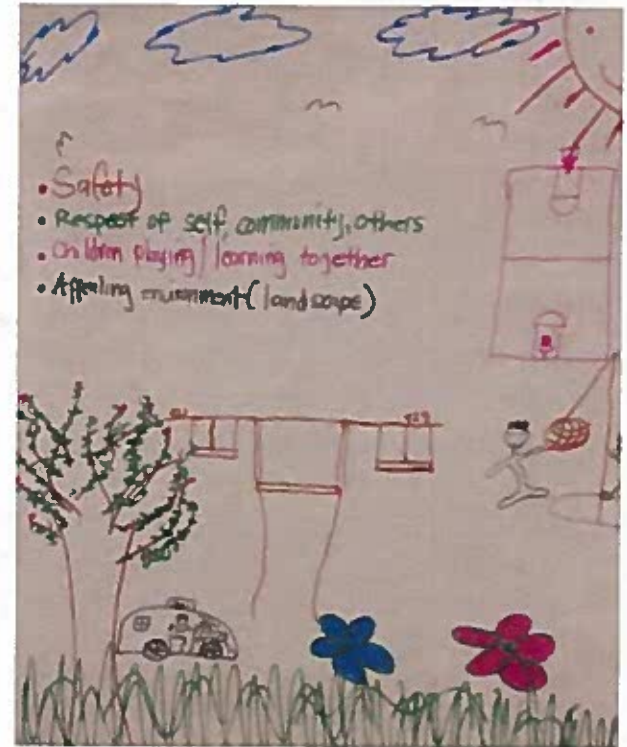 • Safety
• Respect of self, community, others
• Children playing/learning together
• Appealing enviornment (landscape)